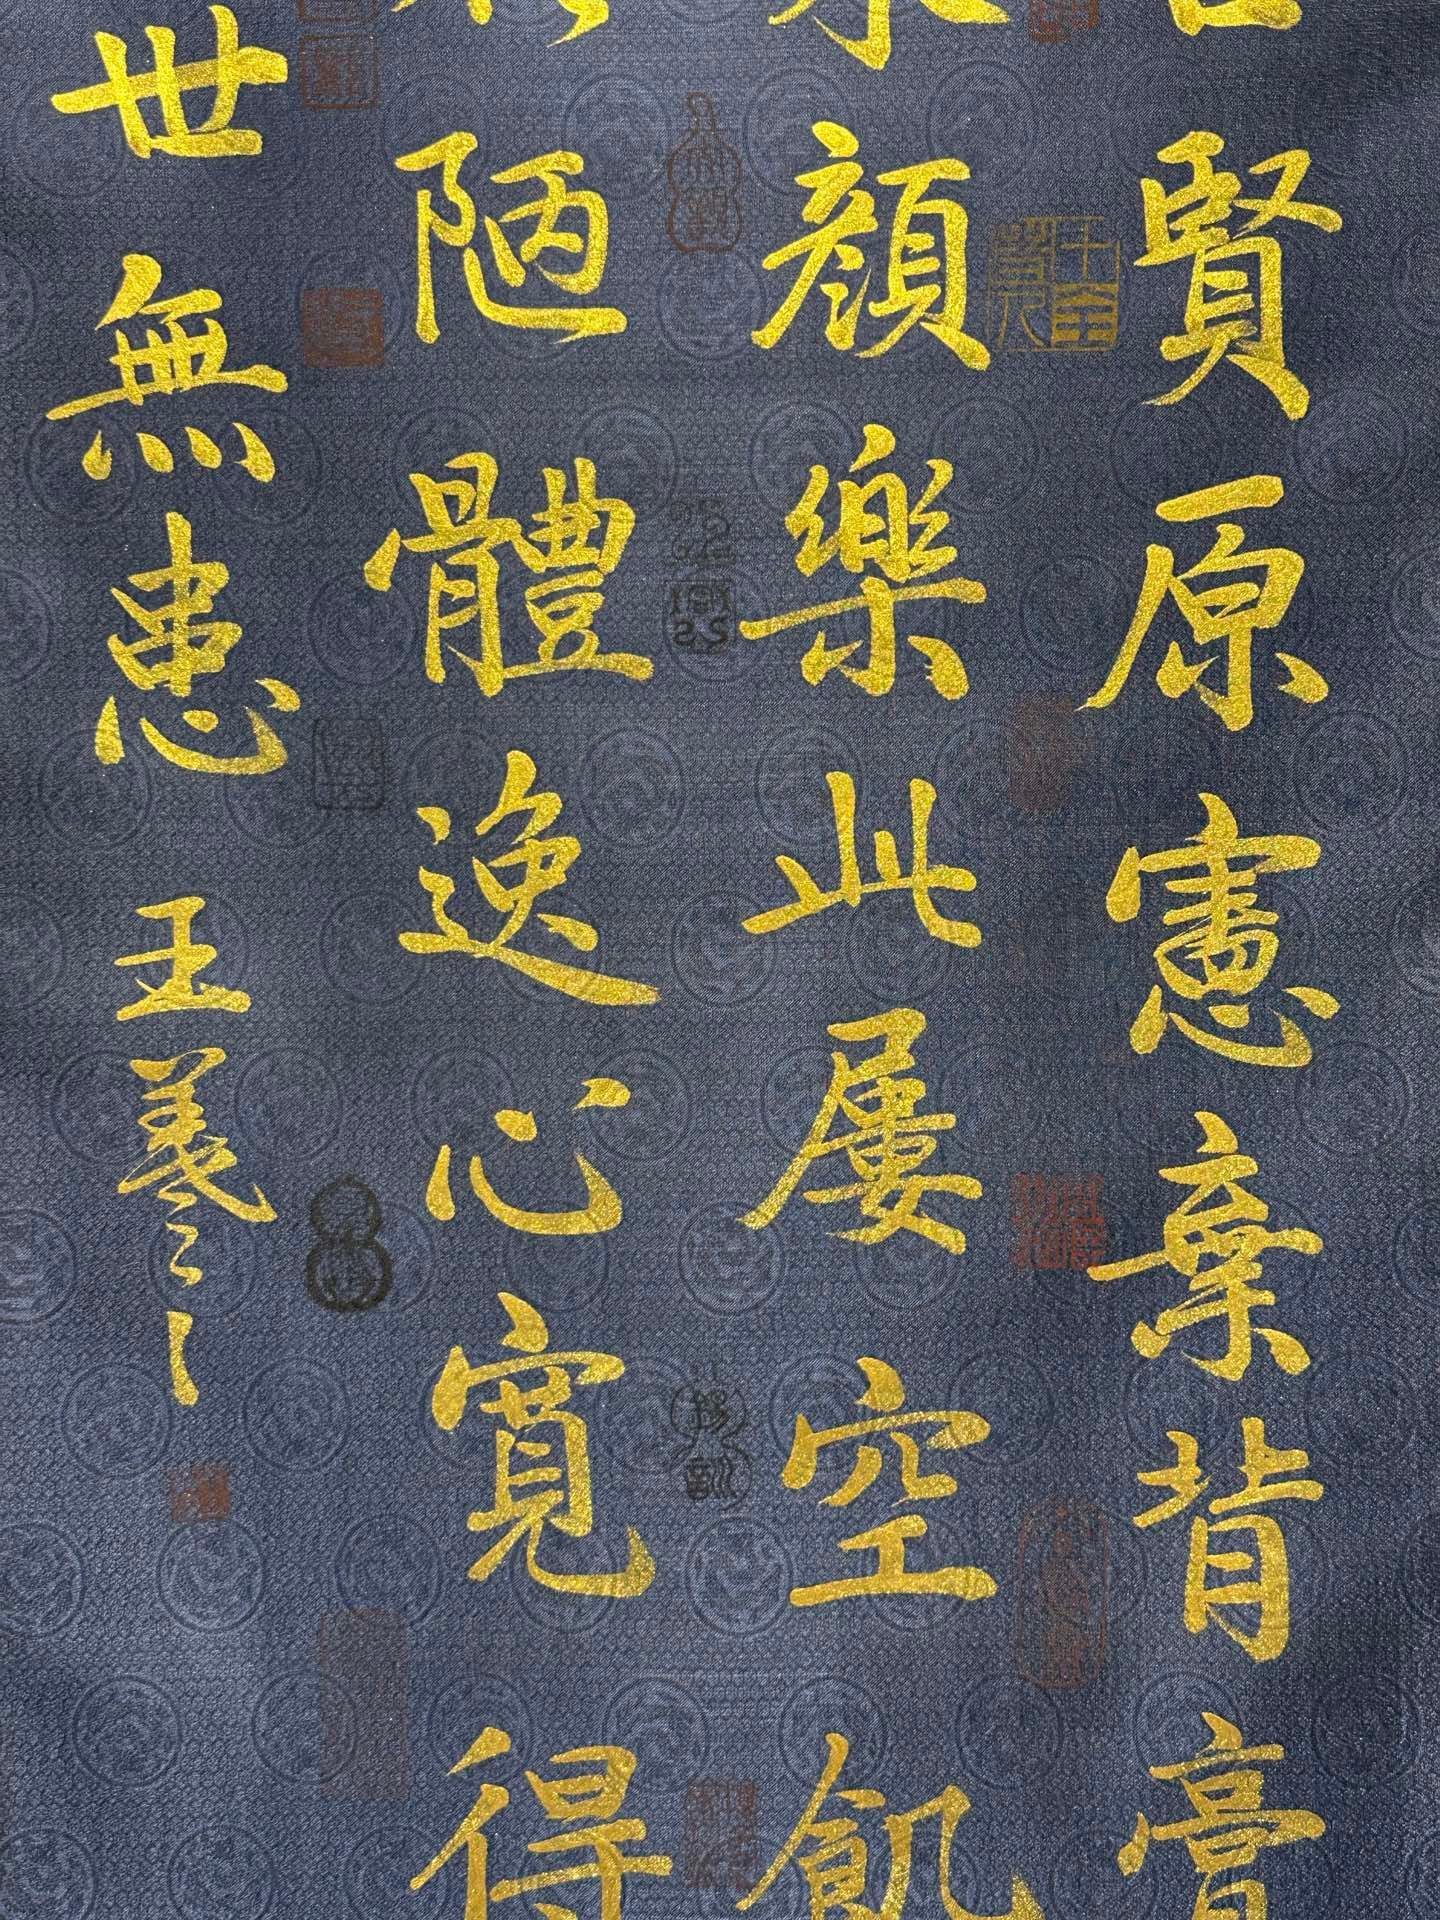 賢原憲棄背膏
顏樂此屢空飢
陋體逸心寬得
世無患王羲之